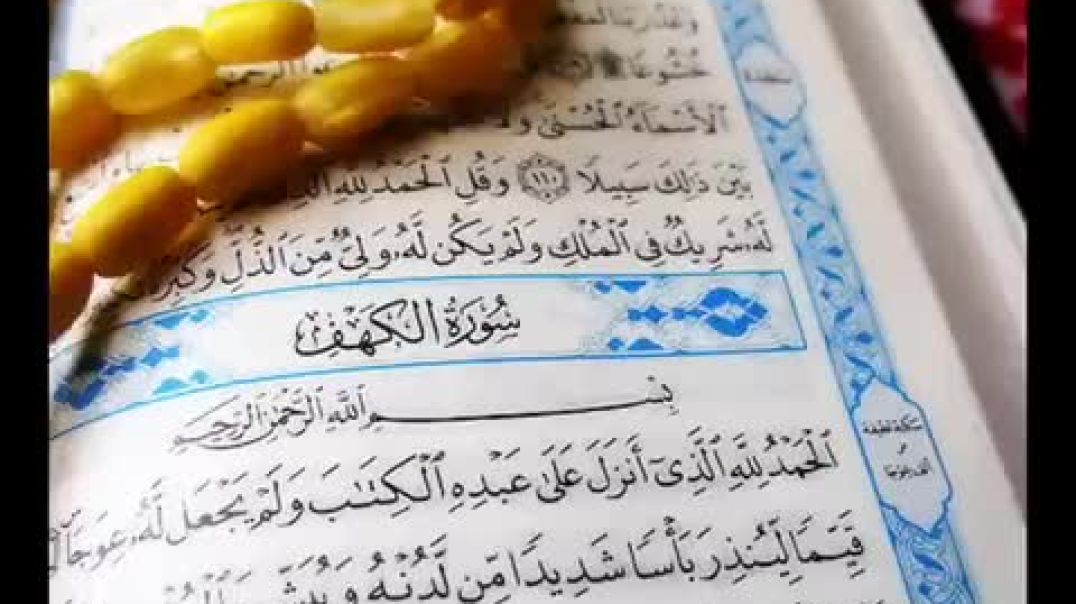 خُشُوعًا
ٱلْأَسْمَآءُ ٱلْحُسْنَىٰ
بَيْنَ ذَٰلِكَ سَبِيلًا ١١٠ وَقُلِ ٱلْحَمْدُ لِلَّهِ
لَّهُۥ شَرِيكٌ فِى ٱلْمُلْكِ وَلَمْ يَكُن لَّهُۥ وَلِىٌّ مِّنَ ٱلذُّلِّ وَكَبِّرْهُ
سُورَةُ الْكَهْفِ
بِسْمِ ٱللَّهِ ٱلرَّحْمَٰنِ ٱلرَّحِيمِ
ٱلْحَمْدُ لِلَّهِ ٱلَّذِىٓ أَنزَلَ عَلَىٰ عَبْدِهِ ٱلْكِتَٰبَ وَلَمْ يَجْعَل لَّهُۥ عِوَجًا
قَيِّمًا لِّيُنذِرَ بَأْسًا شَدِيدًا مِّن لَّدُنْهُ وَيُبَشِّرَ